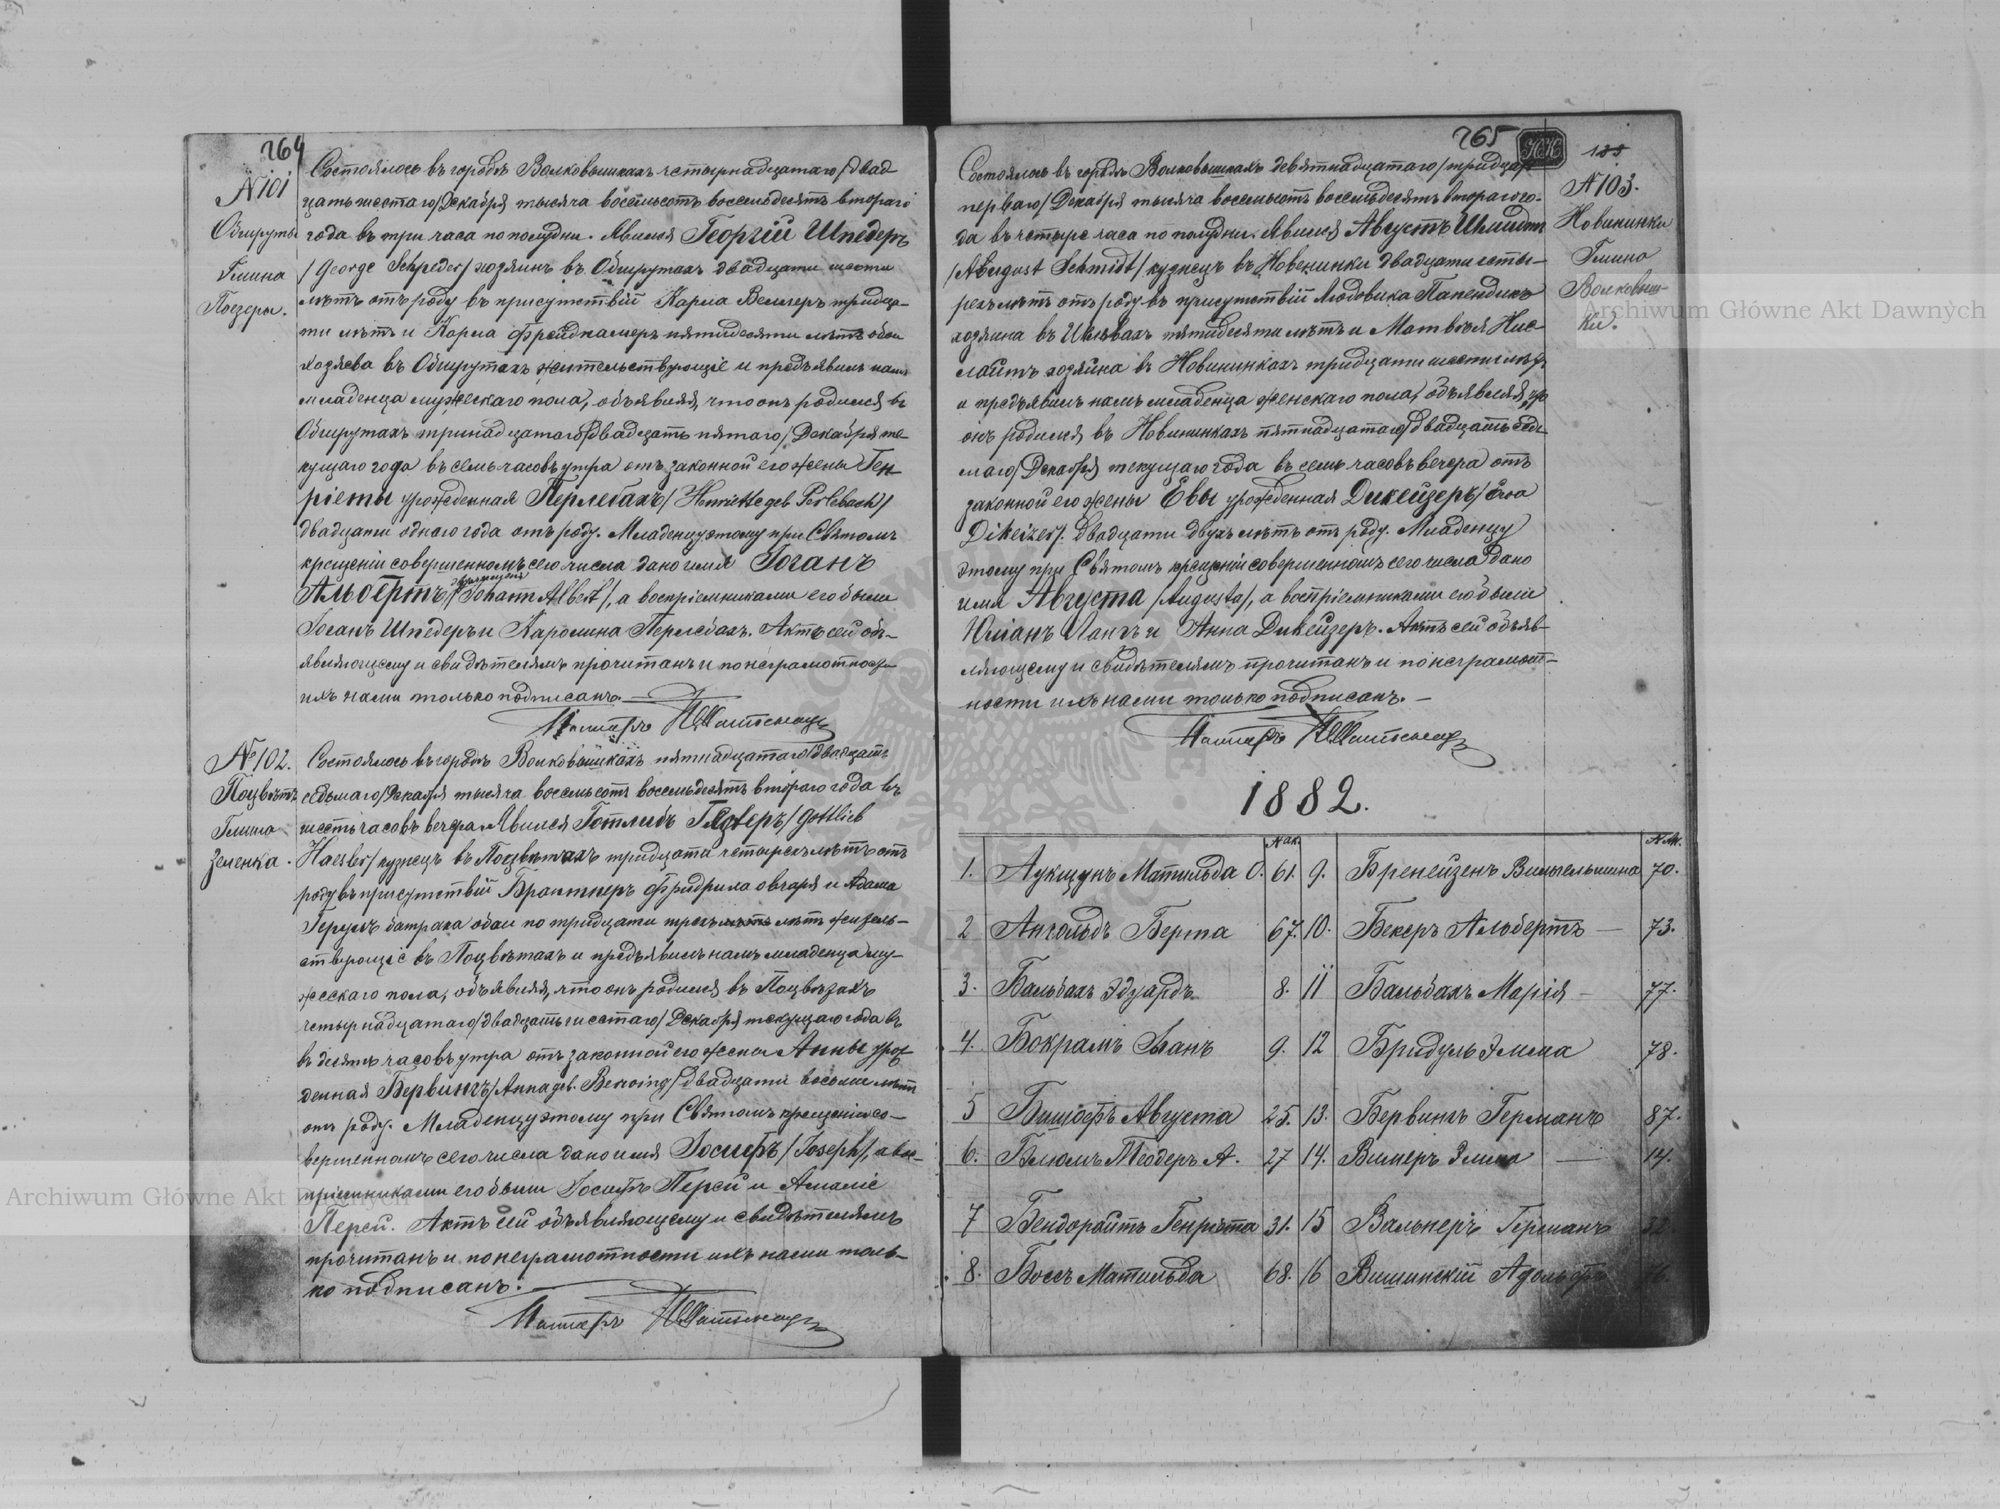 264
№ 101
Обшруты
Гмина
Поезеры.
Состоялось въ городѣ Волковышкахъ четырнадцатаго /двад
цать шестаго/ Декабря тысяча восемьсотъ восемьдесятъ втораго
года въ три часа по полудни. Явился Георгій Шпедеръ
/George Schpeder/ хозяинъ въ Обшрутахъ двадцати шести
лѣтъ отъ роду въ присутствіи Карла Веллеръ тридца-
ти лѣтъ и Карла Фрейдкамеръ пятидесяти лѣтъ обои
хозяева въ Обшрутахъ жительствующіе и предъявилъ намъ
младенца мужескаго пола, объявляя, что онъ родился въ
Обшрутахъ тринадцатаго /двадцать пятаго/ Декабря те-
кущаго года въ семь часовъ утра отъ законной его жены Ген
ріеты урожденная Перлебахъ /Henriette geb Perlebach/
двадцати одного года отъ роду. Младенцу этому при Святомъ
крещеніи совершенномъ сего числа дано имя Іоганъ
Альбертъ /Johann Albert/, а воспріемниками его были
Іоганъ Шпедеръ и Каролина Перлебахъ. Актъ сей объ-
являющему и свидѣтелямъ прочитанъ и по неграмотности
ихъ нами только подписанъ.
Пасторъ
№ 102.
Поцвѣты
Гмина
Зеленка.
Состоялось въ городѣ Волковышкахъ пятнадцатаго /двадцать
седьмаго/ Декабря тысяча восемьсотъ восемьдесятъ втораго года въ
шесть часовъ вечера. Явился Готлибъ Гезлеръ /Gottlieb
Haesler/ кузнецъ въ Поцвѣтахъ тридцати четырехъ лѣтъ отъ
роду въ присутствіи Брантнеръ Фридриха овчаря и Адама
Герулъ батрака обаи по тридцати трехъ лѣтъ житель-
ствующіе въ Поцвѣтахъ и предъявилъ намъ младенца му-
жескаго пола, объявляя, что онъ родился въ Поцвѣтахъ
четырнадцатаго /двадцать шестаго/ Декабря текущаго года въ
въ десять часовъ утра отъ законной его жены Анны урож
денная Бервингъ /Anna geb. Berwing/ двадцати восьми лѣтъ
отъ роду. Младенцу этому при Святомъ крещеніи со-
вершенномъ сего числа дано имя Іосифъ /Joseph/, а вос-
пріемниками его были Іосифъ Перей и Амаліе
Перей. Актъ сей объявляющему и свидѣтелямъ
прочитанъ и по неграмотности ихъ нами толь-
ко подписанъ.
Пасторъ
265
133
№ 103.
Новининки
Гмина
Волковыш-
ки.
Состоялось въ городѣ Волковышкахъ девятнадцатаго /тридцать
перваго/ Декабря тысяча восемьсотъ восемьдесятъ втораго го-
да въ четыре часа по полудни. Явился Августъ Шмидтъ
/August Schmidt/ кузнецъ въ Новенинки двадцати четы-
рехъ лѣтъ отъ роду въ присутствіи Людовика Папендикъ
хозяина въ Шелвахъ пятидесяти лѣтъ и Матвѣя Нис
лайтъ хозяйна въ Новининкахъ тридцати шести лѣтъ
и предъявилъ намъ младенца женскаго пола, объявляя, что
онъ родился въ Новининкахъ пятнадцатаго /двадцать седь-
маго/ Декабря текущаго года въ семь часовъ вечера отъ
законной его жены Евы урожденная Дикейзеръ /Ewa
Dikeizer/. двадцати двухъ лѣтъ отъ роду. Младенцу
этому при Святомъ крещеніи совершенномъ сего числа дано
имя Августа /Augusta/, а воспріемниками его были
Юліанъ Лангъ и Анна Дикейзеръ. Актъ сей объяв-
ляющему и свидѣтелямъ прочитанъ и по неграмот-
ности ихъ нами только подписанъ. —
Пасторъ
1882.
№ ак. № ак.
1. Аукщунъ Матильда О. 61. 9. Бренейзенъ Вильгельмина 70.
2 Ангольдъ Берта 67. 10. Бекеръ Альбертъ — 73.
3. Бальбахъ Эдуардъ 8. 11 Бальбахъ Марія — 77.
4. Бокрамъ Іоанъ 9. 12 Бридуль Эмма 78.
5 Бишофъ Августа 25. 13. Бервингъ Германъ 87.
6. Блюмъ Теодеръ А. 27 14. Вилеръ Эмма — 14.
7 Бендорайтъ Генріета 31. 15 Вальнеръ Германъ 32
8. Боссъ Матильда 68. 16 Вишинскій Адольфъ
Archiwum Główne Akt Dawnych
Archiwum Główne Akt Dawnych